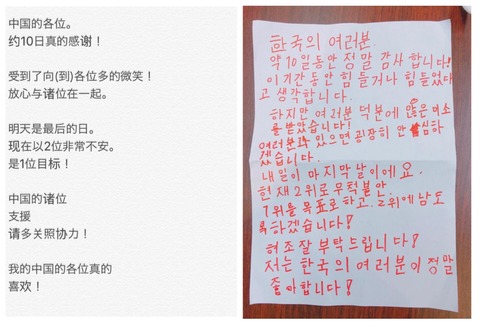 中国的各位。
约10日真的感谢！
受到了向(到)各位多的微笑！
放心与诸位在一起。
明天是最后的日。
现在以2位非常不安。
是1位目标！
中国的诸位
支援
请多关照协力！
我的中国的各位真的
喜欢！
한국의 여러분.
약 10일동안 정말 감사 합니다!
이 기간동안 힘들거나 힘들었다
고 생각합니다.
하지만 여러분 덕분에 많은 미소
를 받았습니다!
여러분과 있으면 굉장히 안심하
겠습니다.
내일이 마지막날이에요.
현재 2위로 무척불안.
1위를 목표로 하고. 2위에 남도
록하겠습니다!
협조잘 부탁드립니다!
저는 한국의 여러분이 정말
좋아합니다!